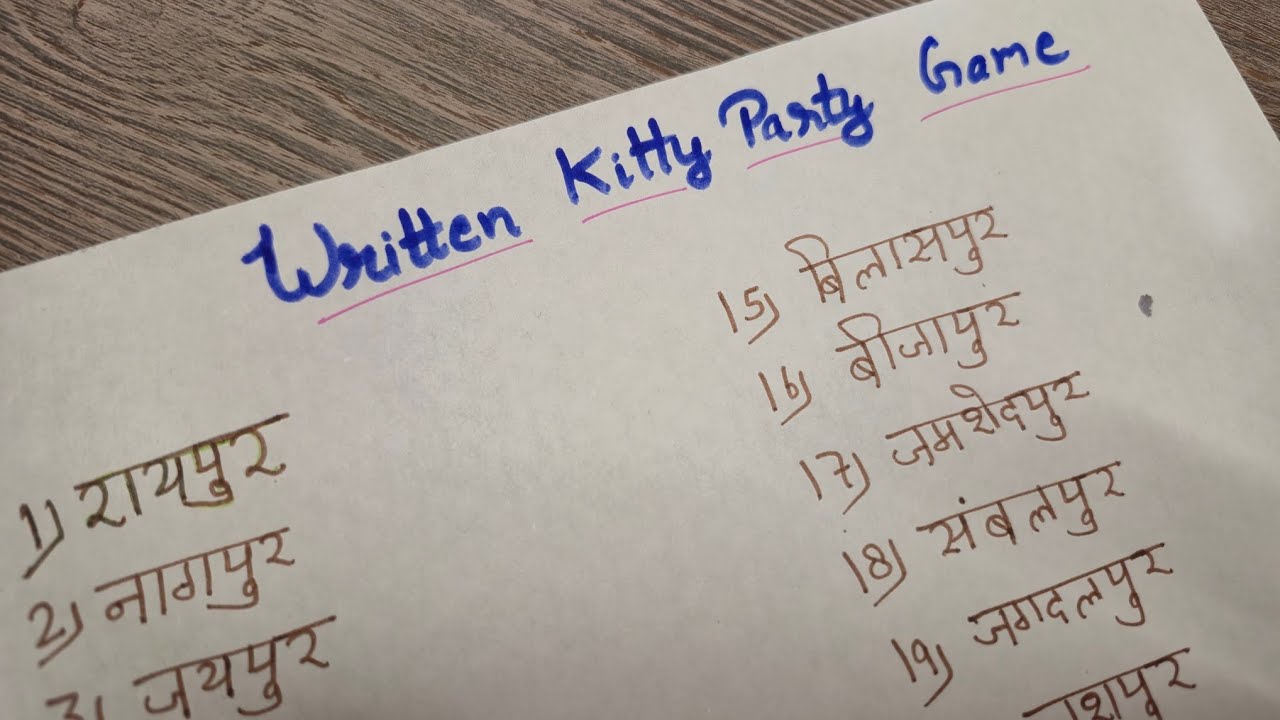 Written Kitty Party Game
1) रायपुर
2) नागपुर
3) जयपुर
15) बिलासपुर
16) बीजापुर
17) जमशेदपुर
18) संबलपुर
19) जगदलपुर